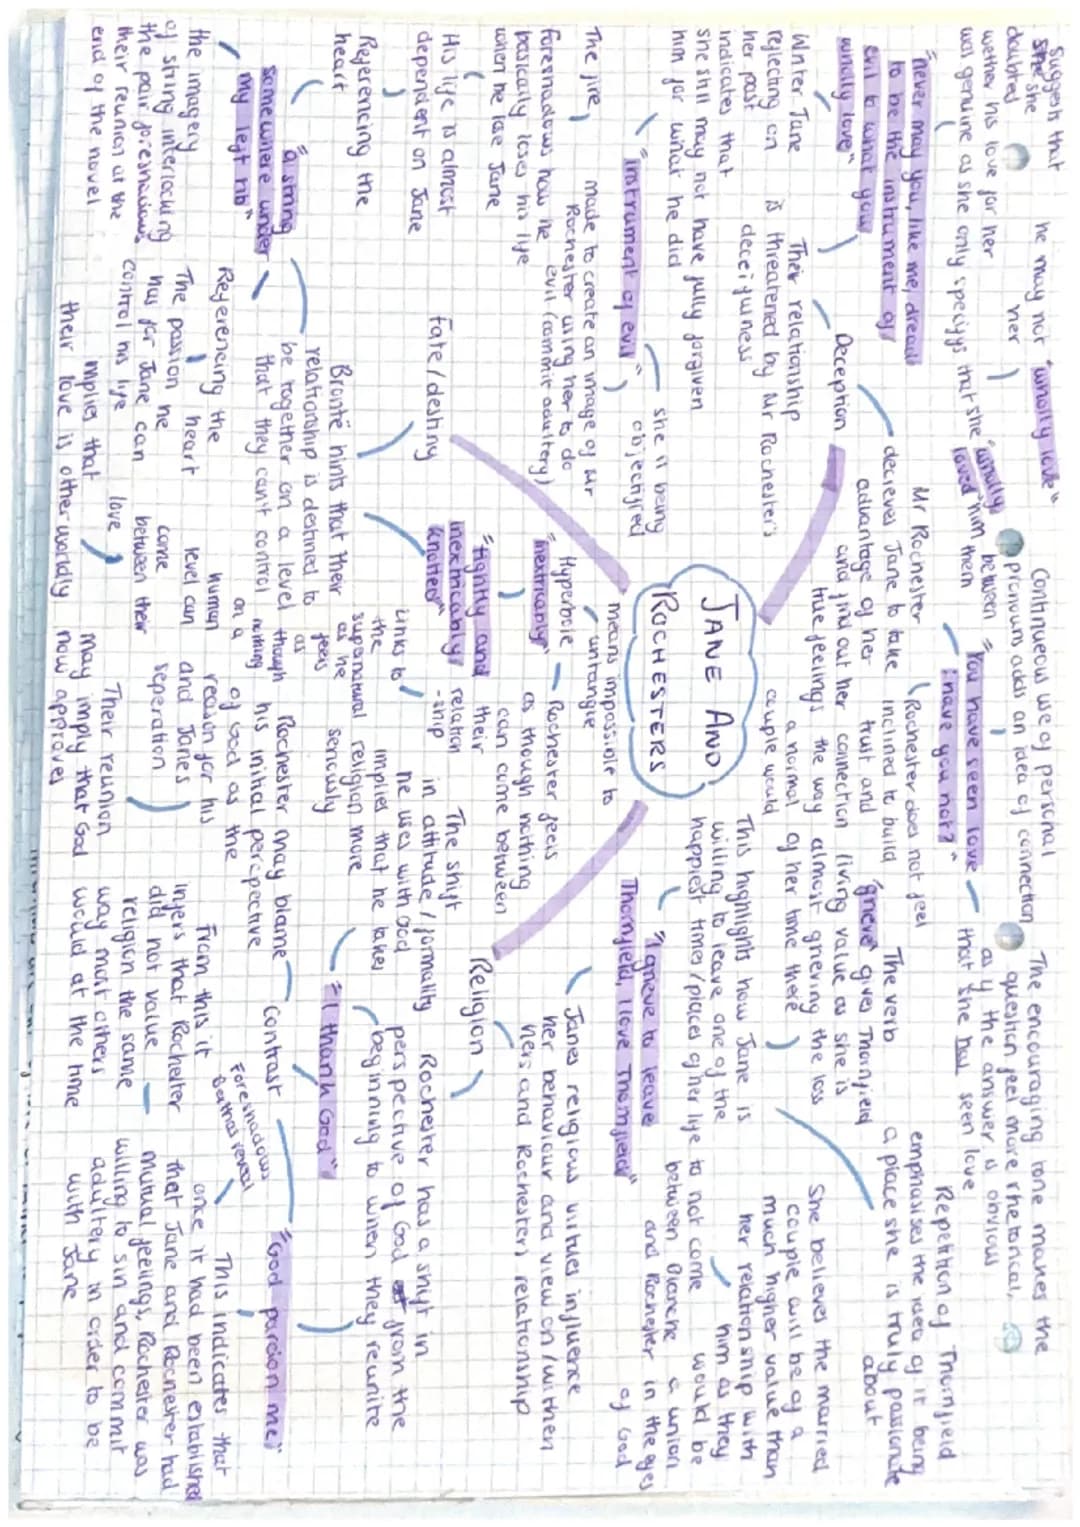 JANE AND
ROCHESTERS
Deception
"never may you, like me, dread
to be the instrument of
evil to what you
wholly love"
Suggests that
she she
doubted
wether his love for her
was genuine as she only specifys that she "wholly
loved" him
he may not "wholly love"
her
Continueous use of personal
pronouns adds an idea of connection
between
them
"You have seen love
have you not?"
The encouraging tone makes the
question feel more rhetorical,
as if the answer is obvious
that she has seen love
Mr Rochester
decieves Jane to take
advantage of her trust and
and find out her connection
true feelings the way
a normal
couple would
Rochester does not feel
inclined to build
Their relationship
is threatened by Mr Rochester's
deceifulness
When Jane
rejecting on
her past
indicates that
she still may not have fully forgiven
him for what he did
"instrument of evil"
she is being
objectifyed
made to create an image of Mr
Rochester using her to do
evil (commit adultery)
The fire
foreshadows how he
basically loses his life
when he lose Jane
His life is almost
dependent on Jane
Fate/destiny
Referencing the
heart
"a string
somewhere under
my left rib"
the imagery
of string interlocking
the pair foreshadows
their reunion at the
end of the novel
Referencing the
heart
The passion he
has for Jane can
control his life
Brontë hints that their
relationship is destined to
be together on a level
that they can't control
human
level can
come
between their
love
implies that
their love is otherworldly
"tightly and
inextricably
knotted"
"inextricably"
Hyperbole
means impossible to
untangle
Rochester feels
as though nothing
can come between
their
relation
-ship
Links to
the
supernatural
as he
feels
as
though
nothing
on a
Religion
Janes religious virtues influence
her behaviour and view on/within
hers and Rochesters relationship
Rochester has a shift in
perspective of God from the
beginning to when they reunite
The shift
in attitude/formality
he uses with God
implies that he takes
religion more
seriously
"I thank God"
contrast
"God pardon me"
Rochester may blame
his initial percpective
of God as the
reason for his
and Janes
seperation
Their reunion
may imply that God
now approves
From this it
infers that Rochester
did not value
religion the same
way most others
would at the time
Foreshadows
This indicates that
once it had been established
that Jane and Rochester had
mutual feelings, Rochester was
willing to sin and commit
adultery in order to be
with Jane
"I grieve to leave
Thornfield, I love Thornfield"
The verb
"grieve" gives Thornfield
living value as she is
almost grieving the loss
of her time there
This highlights how Jane is
willing to leave one of the
happiest times/places of her life to not come
between Blanche
and Rochester in the eyes
of God
Repetition of Thornfield
emphasises the idea of it being
a place she is truly passionate
about
She believes the married
couple will be of a
much higher value than
her relationship with
him as they
would be
a union